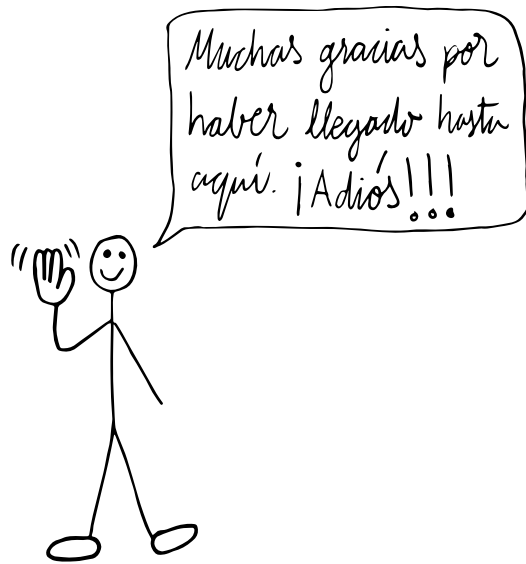 Muchas gracias por
haber llegado hasta
aquí. ¡Adiós!!!